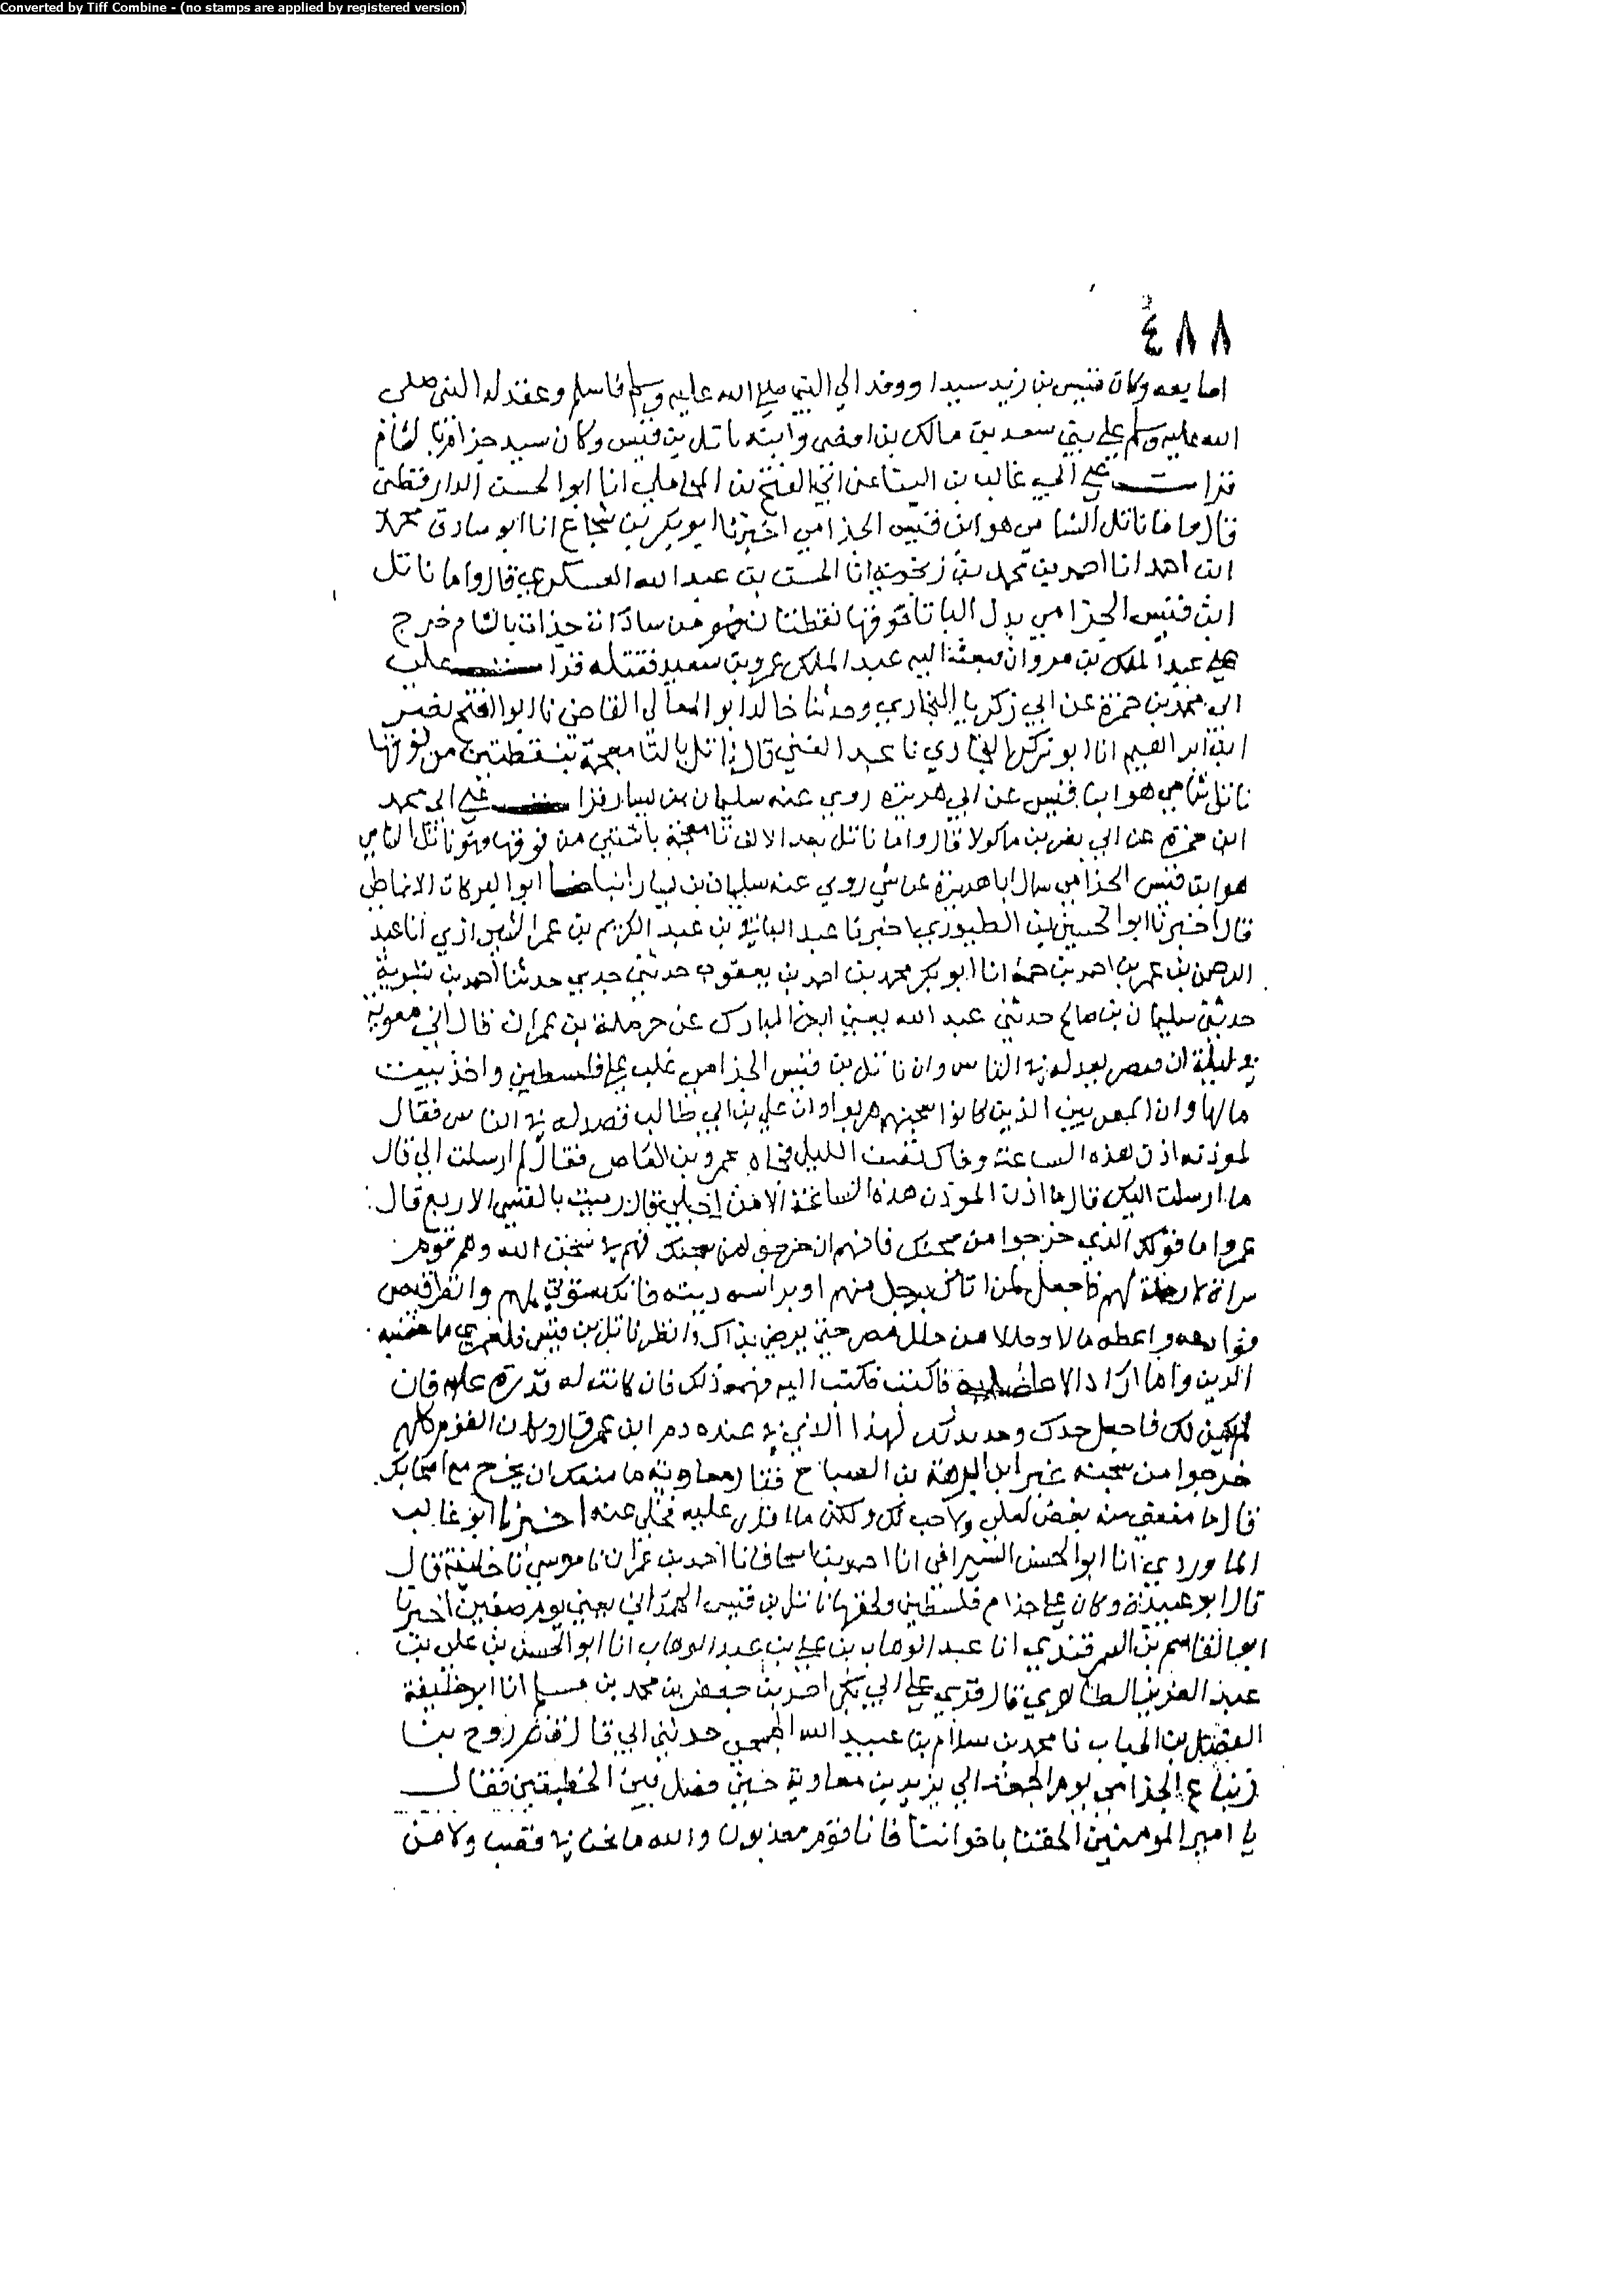 Converted by Tiff Combine - (no stamps are applied by registered version)
٤٨٨
اما بعد وكان قيس بن زيد سيدا ووفد الي النبي صلي الله عليه وسلم فاسلم وعقد له النبي صلى
الله عليه وسلم علي بني سعد بن مالك بن افصى وابنه ناتل بن قيس وكان سيد جذام بالشام
قرات علي ابي غالب بن البنا عن ابي الفتح بن المحاملي انا ابو الحسن الدارقطني
قال واما ناتل الشامي هو ابن قيس الجذامي اخبرنا ابو بكر بن شجاع انا ابو صادق محمد
ابن احمد انا احمد بن محمد بن زنجويه انا الحسن بن عبد الله العسكري قال واما ناتل
ابن قيس الجذامي بدل البا تا فوقها نقطتان فهو من سادات جذام بالشام خرج
علي عبد الملك بن مروان فبعث اليه عبد الملك عمرو بن سعيد فقتله قرا علي
ابي محمد بن حمزة عن ابي زكريا البخاري وحدثنا خالد ابو المعالي القاضي نا ابو الفتح نصر
ابن ابراهيم انا ابو زكريا البخاري نا عبد الغني قال ناتل بالتا معجمة بنقطتين من فوقها
ناتل شامي هو ابن قيس عن ابي هريرة روي عنه سليمان بن يسار قرا علي ابي محمد
ابن حمزة عن ابي نصر بن ماكولا قال واما ناتل بعد الالف تا معجمة باثنتين من فوقها فهو ناتل الشامي
هو ابن قيس الجذامي سال ابا هريرة عن شي روي عنه سليمان بن يسار انبانا ابو البركات الانماطي
قال اخبرنا ابو الحسين بن الطيوري اخبرنا عبد الباقي بن عبد الكريم بن عمر الشيرازي انا عبد
الرحمن بن عمر بن احمد بن حمه انا ابو بكر محمد بن احمد بن يعقوب حدثني جدي حدثنا احمد بن شبوية
حدثني سليمان بن صالح حدثني عبد الله يعني ابن المبارك عن حرملة بن عمران قال اتي معوية
في ليلة ان قيصر يصد له في الناس وان ناتل بن قيس الجذامي غلب علي فلسطين واخذ بيت
مالها وان المصريين الذين كانوا سجنهم هربوا وان علي بن ابي طالب قصد له في الناس فقال
لموذنه اذن هذه الساعة وذاك نصف الليل فجاه عمرو بن العاص فقال لم ارسلت الي قال
ما ارسلت اليك قال ما اذن الموذن هذه الساعة الا من اجلي قال رميت بالقسي الاربع قال
عمرو اما هولاء الذي خرجوا من سجنك فانهم ان خرجوا من سجنك فهم في سجن الله وهم قوم
سراة لا رحلة لهم فاجعل لمن اتاك برجل منهم او براسه ديته فانك ستوتي بهم وانظر قيصر
فوادعه واعطه مالا وحللا من حلل مصر حتي يرضي بذاك وانظر ناتل بن قيس فلعمري ما اغضبه
الدين وانما اراد الا ما اصاب فاكتب فكتب اليه فهبه ذلك فان كانت له قدرة عليه فان
لم يكن لك فاجعل حدك وحديدك لهذا الذي عنده دم ابن عمك قال وكان القوم كلهم
خرجوا من سجنه غير ابن ابرهة بن الصباح فقال معاوية ما منعك ان يخرج مع اصحابك
قال ما منعني منه بغض لعلي ولا حب لك ولكن ما اقدر عليه فخلى عنه اخبرنا ابو غالب
الماوردي انا ابو الحسن السيرافي انا احمد بن اسحاق انا احمد بن عمران نا موسي نا خليفة قال
قال ابو عبيدة وكان علي جذام فلسطين ولخمها ناتل بن قيس الجذامي يعني يوم صفين اخبرنا
ابو القاسم بن السمرقندي انا عبد الوهاب بن علي بن عبد الوهاب انا ابو الحسن بن علي بن
عبد العزيز الطاهري قال قري علي ابي بكر احمد بن جعفر بن محمد بن مسلم انا ابو خليفة
الفضل بن الحباب نا محمد بن سلام بن عبيد الله الجمحي حدثني ابي قال قام روح بن
زنباع الجذامي يوم الجمعة الي يزيد بن معاوية حين فصل بين الخطبتين فقال
يا امير المومنين الحقنا باخواننا فانا قوم معديون والله ما نحن في قصب ولا من